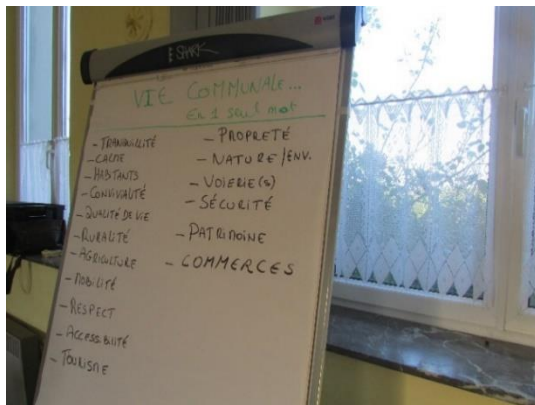 VIE COMMUNALE...
En 1 seul mot
- TRANQUILITÉ
- CALME
- HABITANTS
- CONVIVIALITÉ
- QUALITÉ DE VIE
- RURALITÉ
- AGRICULTURE
- MOBILITÉ
- RESPECT
- ACCESSIBILITÉ
- TOURISME
- PROPRETÉ
- NATURE/ENV.
- VOIERIE(S)
- SÉCURITÉ
- PATRIMOINE
- COMMERCES